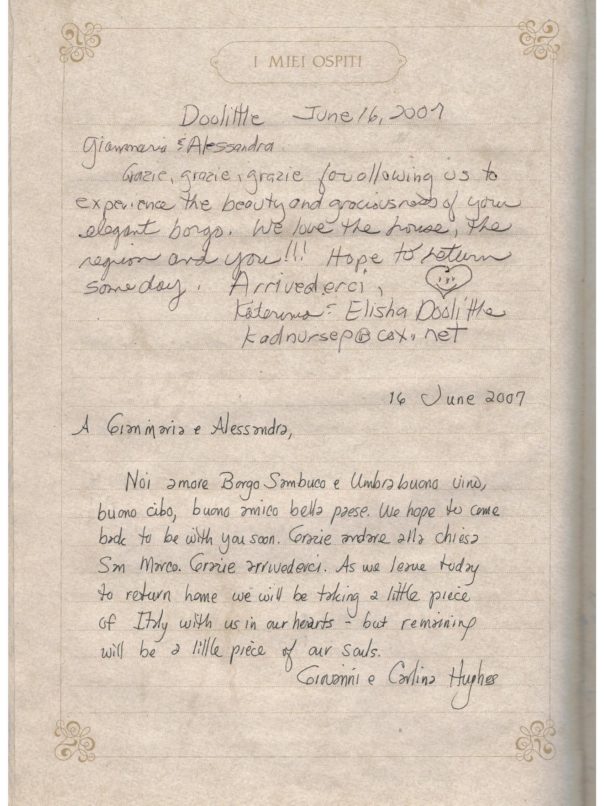 I MIEI OSPITI
Doolittle June 16, 2007
Gianmaria & Alessandra
Grazie, grazie, grazie for allowing us to
experience the beauty and graciousness of your
elegant borgo. We love the house, the
region and you!!! Hope to return
some day. Arrivederci,
Katerina & Elisha Doolittle
kadnursep@cox.net
16 June 2007
A Gianmaria e Alessandra,
Noi amore Borgo Sambuco e Umbra buono vino,
buono cibo, buono amico bella paese. We hope to come
back to be with you soon. Grazie andare alla chiesa
San Marco. Grazie arrivederci. As we leave today
to return home we will be taking a little piece
of Italy with us in our hearts - but remaining
will be a little piece of our souls.
Giovanni e Carlina Hughes